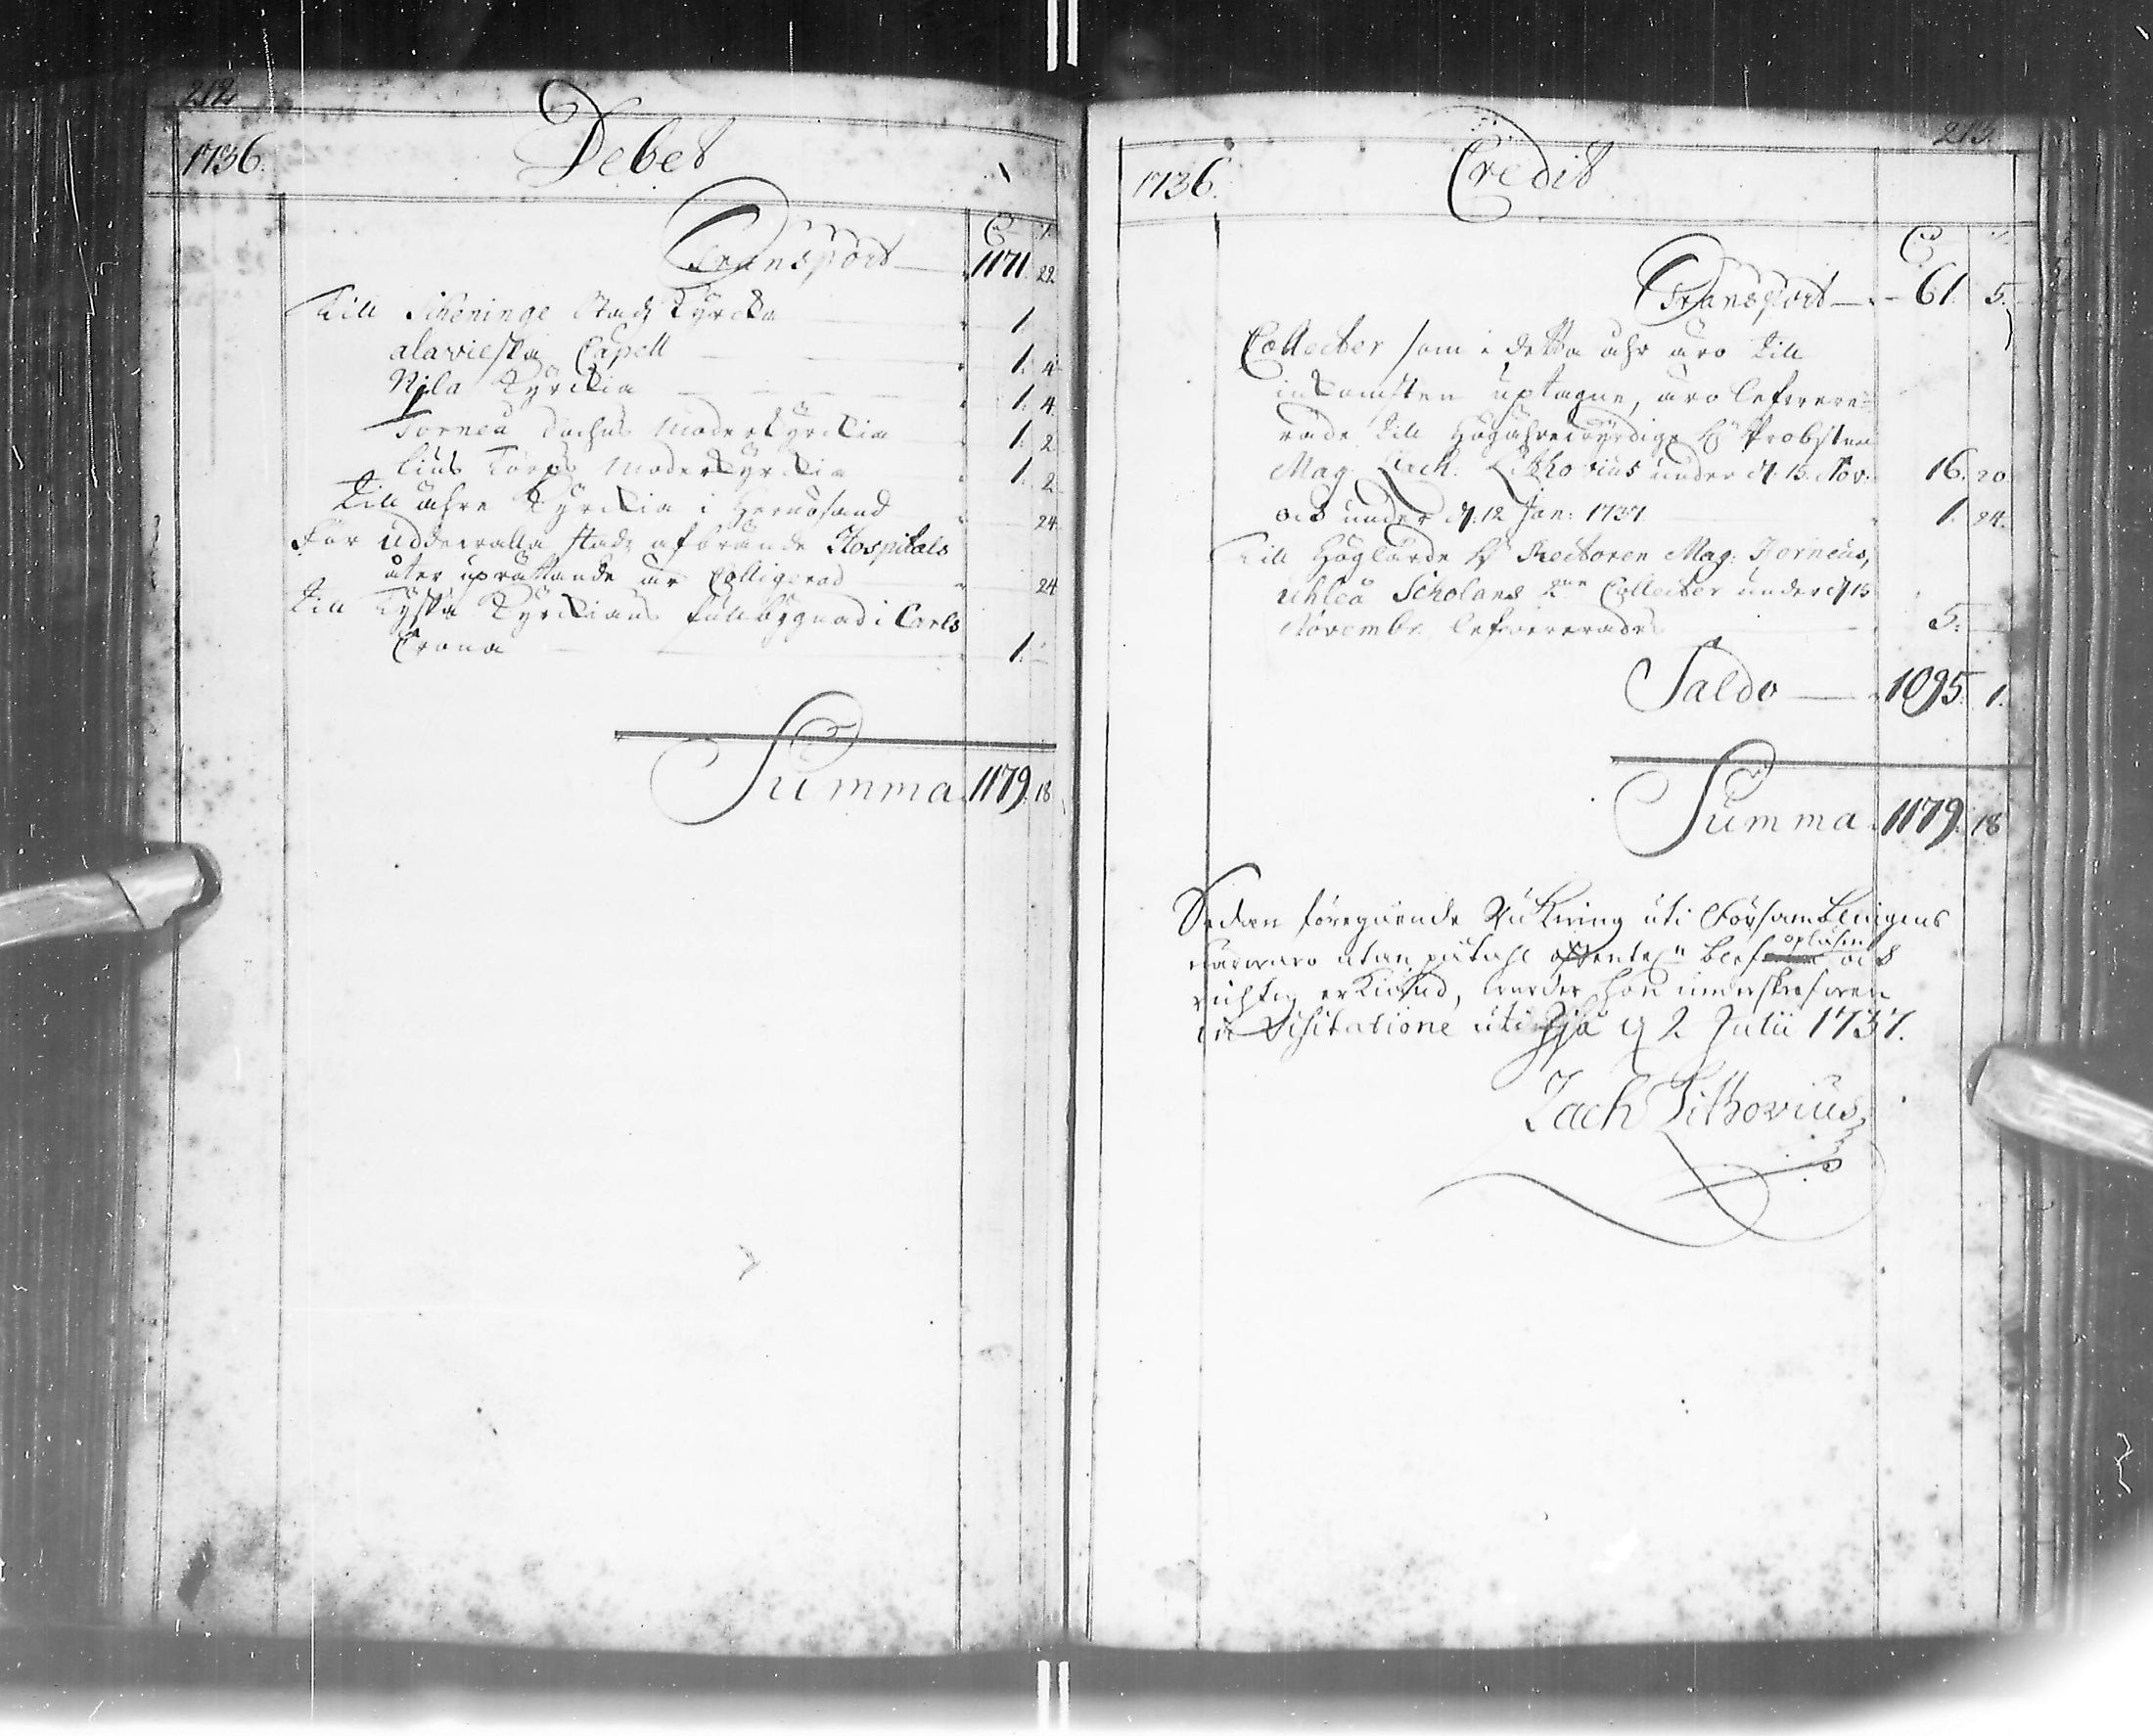 212
1736. Debet
Transport — 1171. 22.
Till Scheninge Stadz Kyrcka 1.
alavieska Capell 1. 4
Kyrckia 1. 4.
Torneå Moderkyrckia 1. 2
Moderkyrckia 1. 2
Till åhre Kyrckia i Hernösand 24.
För Uddewalla stadz Hospitals
åter uprättande är Colligerad 24
Till Tyska Kyrckians i Carls
Crona 1. —
Summa 1179. 18
213.
1736. Credit
Transport — 61. 5.
Collecter som i detta åhr äro till
inkomsten uptagne, äro lefwere-
rade till Högährewyrdige H Probsten
Mag. Zach. Lithovius under d. 15. Nov. 16. 20
och under d. 12 Jan: 1737. 1. 24.
Till Höglärde H Rectoren Mag.
Uhleå Scholans 2ne Collecter under d 15
Novembr. lefwererades 5. —
Saldo — 1095. 1.
Summa 1179. 18
Sedan föregående Räkning uti Församblingens
närwaro utan påtahl opläsen och
richtig erkiend, warder hon underskrefwen
in Visitatione uti d 2 Julii 1737.
Zach Lithovius